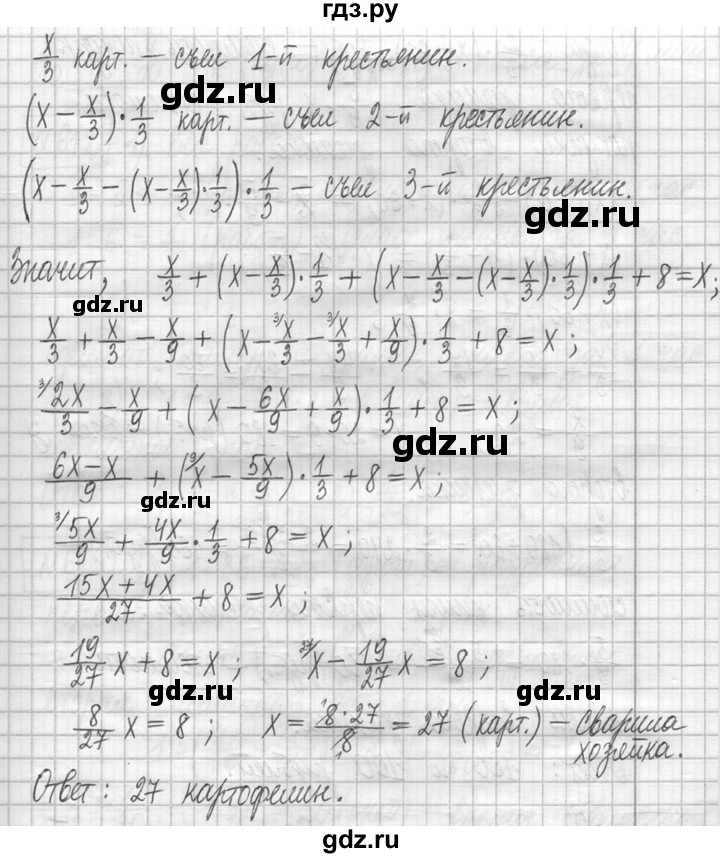 гдз.ру
x/3 карт. – съел 1-й крестьянин.
gdz.ru
(x − x/3) · 1/3 карт. – съел 2-й крестьянин.
(x − x/3 − (x − x/3) · 1/3) · 1/3 – съел 3-й крестьянин.
gdz.ru
Значит, x/3 + (x − x/3) · 1/3 + (x − x/3 − (x − x/3) · 1/3) · 1/3 + 8 = x;
gdz.ru
x/3 + x/3 − x/9 + (x − ³⁾x/3 − ³⁾x/3 + x/9) · 1/3 + 8 = x;
³⁾2x/3 − x/9 + (x − 6x/9 + x/9) · 1/3 + 8 = x;
gdz.ru
6x − x/9 + (⁹⁾x − 5x/9) · 1/3 + 8 = x;
gdz.ru
³⁾5x/9 + 4x/9 · 1/3 + 8 = x;
15x + 4x/27 + 8 = x;
19/27 x + 8 = x; ²⁷⁾x − 19/27 x = 8;
gdz.ru gdz.ru
8/27 x = 8; x = 8 · 27/8 = 27 (карт.) – сварила
хозяйка.
Ответ: 27 картофелин.
gdz.ru